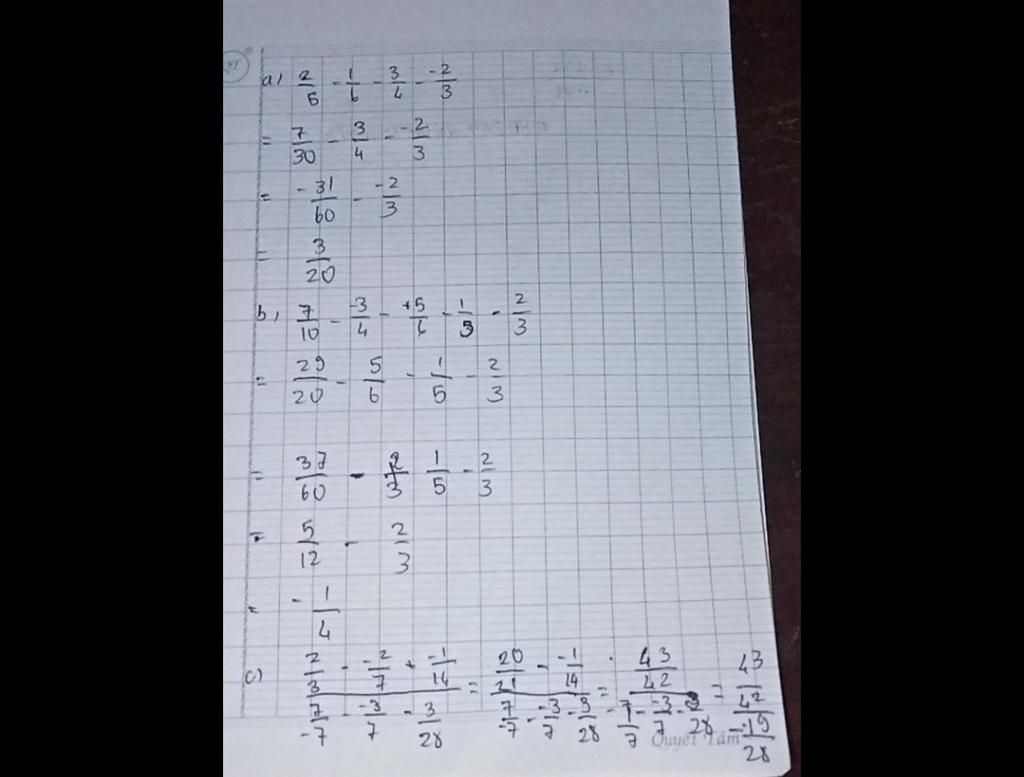 a, 2/5 - 1/6 - 3/4 - -2/3
= 7/30 - 3/4 - -2/3
= -31/60 - -2/3
= 3/20
b, 7/10 - -3/4 - +5/6 - 1/5 - 2/3
= 29/20 - 5/6 - 1/5 - 2/3
= 37/60 - 1/5 - 2/3
= 5/12 - 2/3
= - 1/4
c) (2/3 - -2/7 + -1/14)/(7/-7 - -3/7 - 3/28) = (20/21 - -1/14)/(7/-7 - -3/7 - 3/28) = (43/42)/(-7/7 - -3/7 - 3/28) = (43/42)/(-19/28)
Quyết Tâm